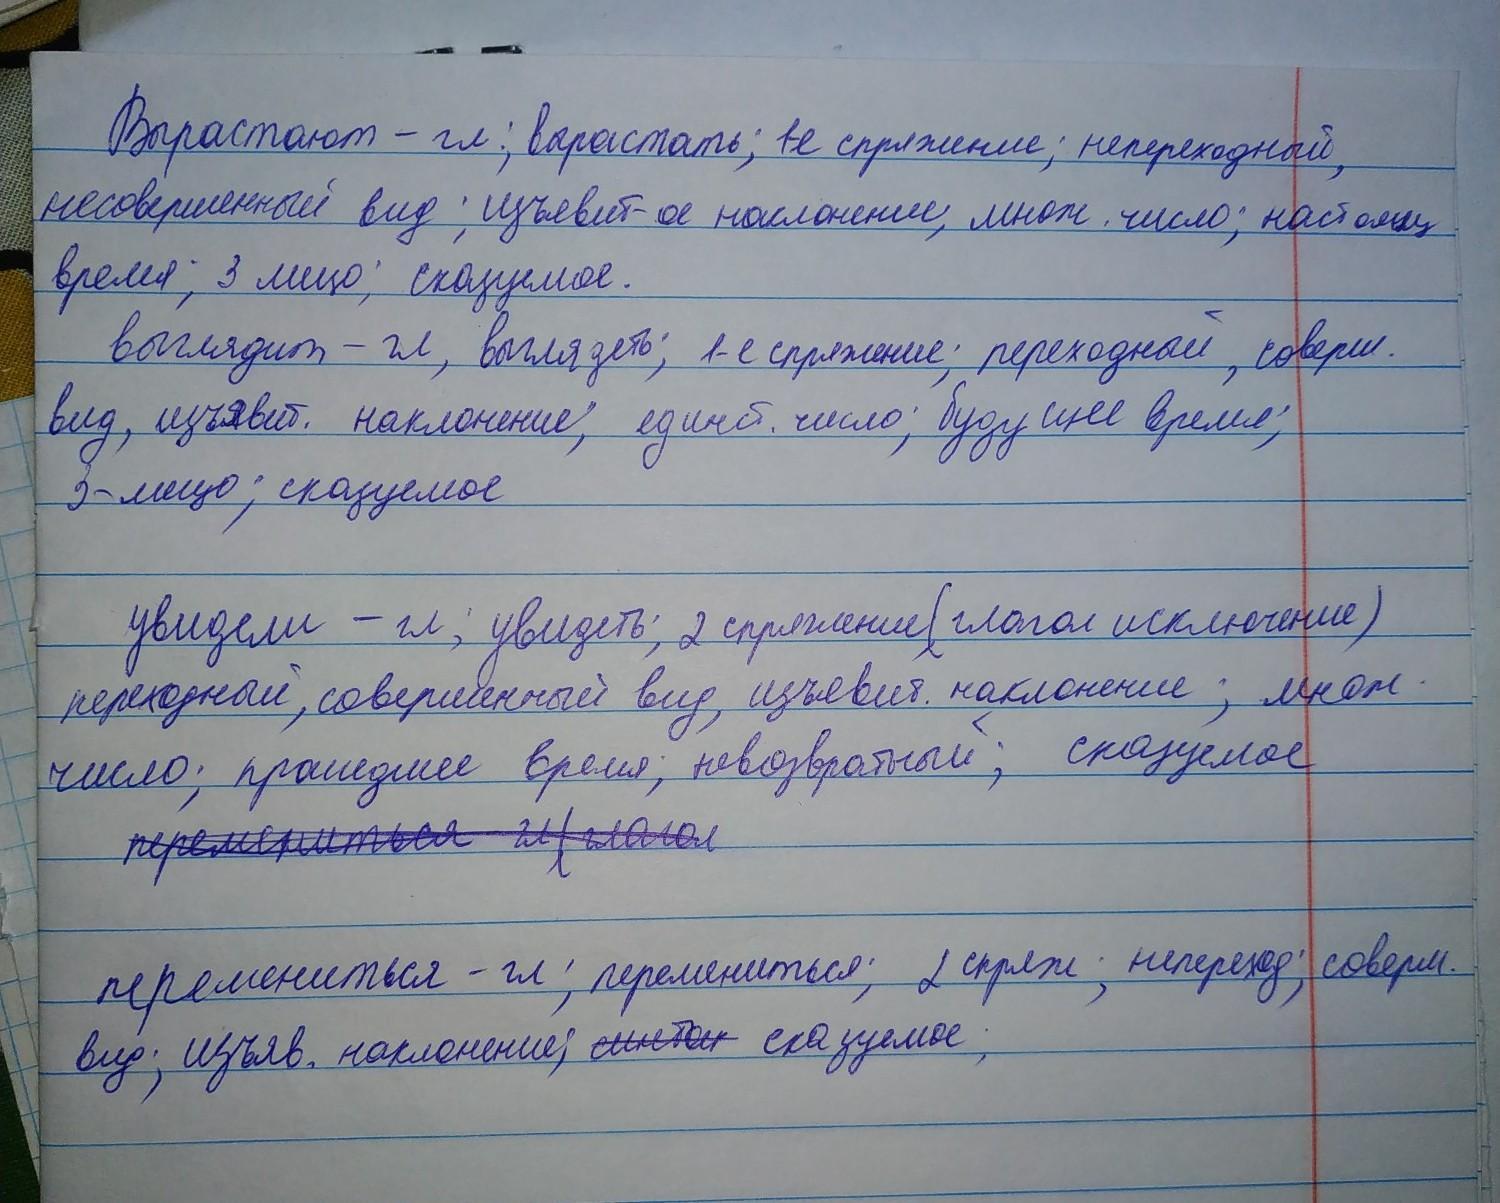 Вырастают – гл; вырастать; 1-е спряжение; непереходный,
несовершенный вид; изъявит-ое наклонение, множ. число; настоящ
время; 3 лицо; сказуемое.
выглядит – гл, выглядеть; 1-е спряжение; переходный, соверш.
вид, изъявит. наклонение; единст. число; будущее время;
3-лицо; сказуемое
увидели – гл; увидеть; 2 спряжение (глагол исключение)
переходный, совершенный вид, изъявит. наклонение; множ.
число; прошедшее время; невозвратный; сказуемое
перемениться гл (глагол
перемениться – гл; перемениться; 2 спряж; непереход; соверш.
вид; изъяв. наклонение; синтак сказуемое;